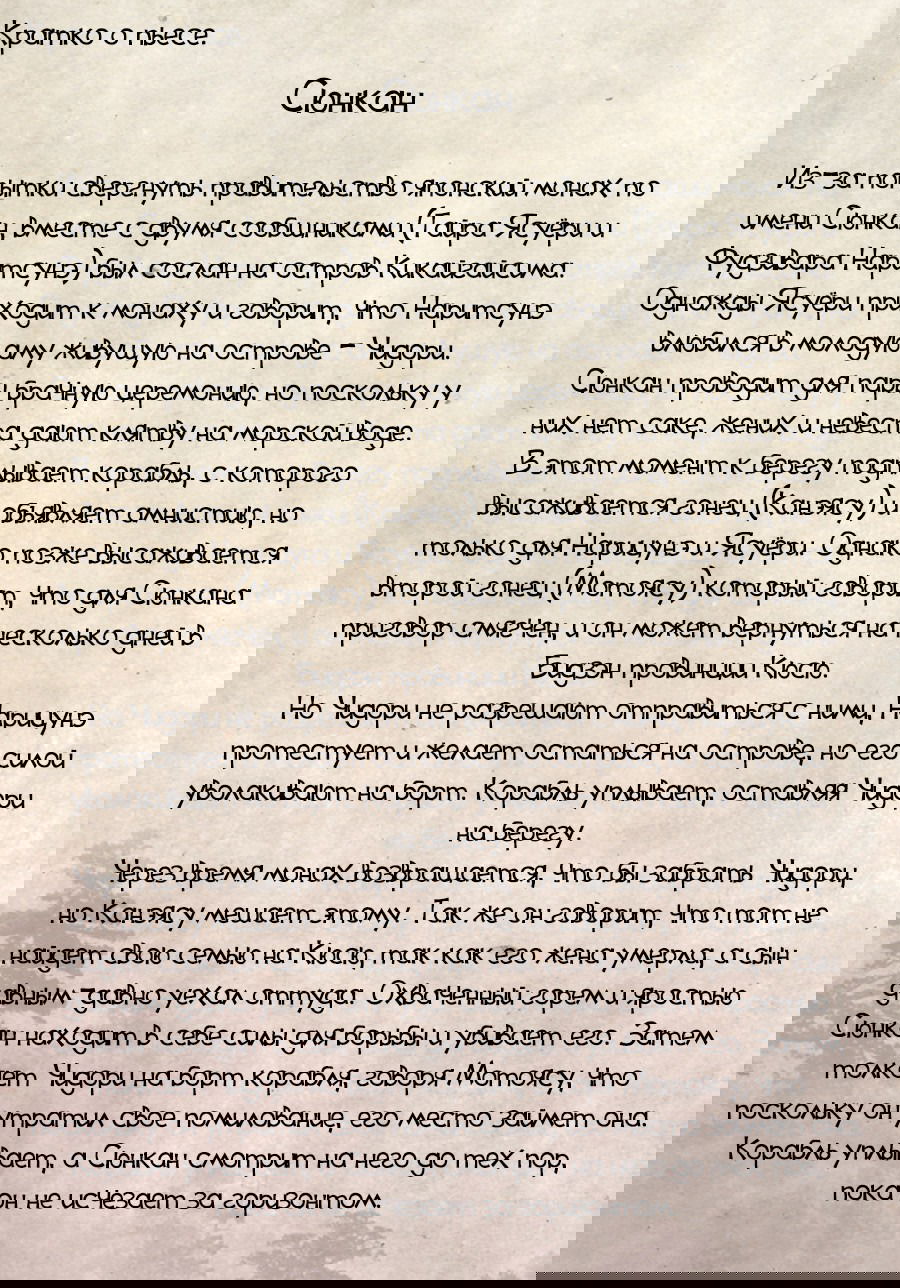 Кратко о пьесе.
Сюнкан
Из-за попытки свергнуть правительство японский монах по
имени Сюнкан, вместе с двумя сообщниками (Таира Ясуёри и
Фудзивара Наритсунэ) был сослан на остров Кикайгайсима.
Однажды Ясуёри приходит к монаху и говорит, что Наритсунэ
влюбился в молодую даму живущую на острове - Чидори.
Сюнкан проводит для пары брачную церемонию, но поскольку у
них нет саке, жених и невеста дают клятву на морской воде.
В этот момент к берегу подплывает корабль, с которого
высаживается гонец (Канэясу) и объявляет амнистию, но
только для Нарицунэ и Ясуёри. Однако позже высаживается
второй гонец (Мотоясу) который говорит, что для Сюнкана
приговор смягчен, и он может вернуться на несколько дней в
Бидзэн провинции Кюсю.
Но Чидори не разрешают отправиться с ними. Нарицунэ
протестует и желает остаться на острове, но его силой
уволакивают на борт. Корабль уплывает, оставляя Чидори
на берегу.
Через время монах возвращается что бы забрать Чидори,
но Канэясу мешает этому. Так же он говорит, что тот не
найдет свою семью на Кюсю, так как его жена умерла, а сын
давным-давно уехал оттуда. Охваченный горем и яростью
Сюнкан находит в себе силы для борьбы и убивает его. Затем
толкает Чидори на борт корабля, говоря Мотоясу, что
поскольку он утратил свое помилование, его место займет она.
Корабль уплывает, а Сюнкан смотрит на него до тех пор,
пока он не исчезает за горизонтом.